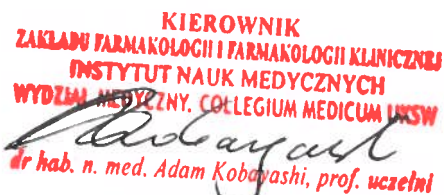 KIEROWNIK
ZAKŁADU FARMAKOLOGII I FARMAKOLOGII KLINICZNEJ
INSTYTUT NAUK MEDYCZNYCH
WYDZIAŁ MEDYCZNY. COLLEGIUM MEDICUM UKSW
dr hab. n. med. Adam Kobayashi, prof. uczelni